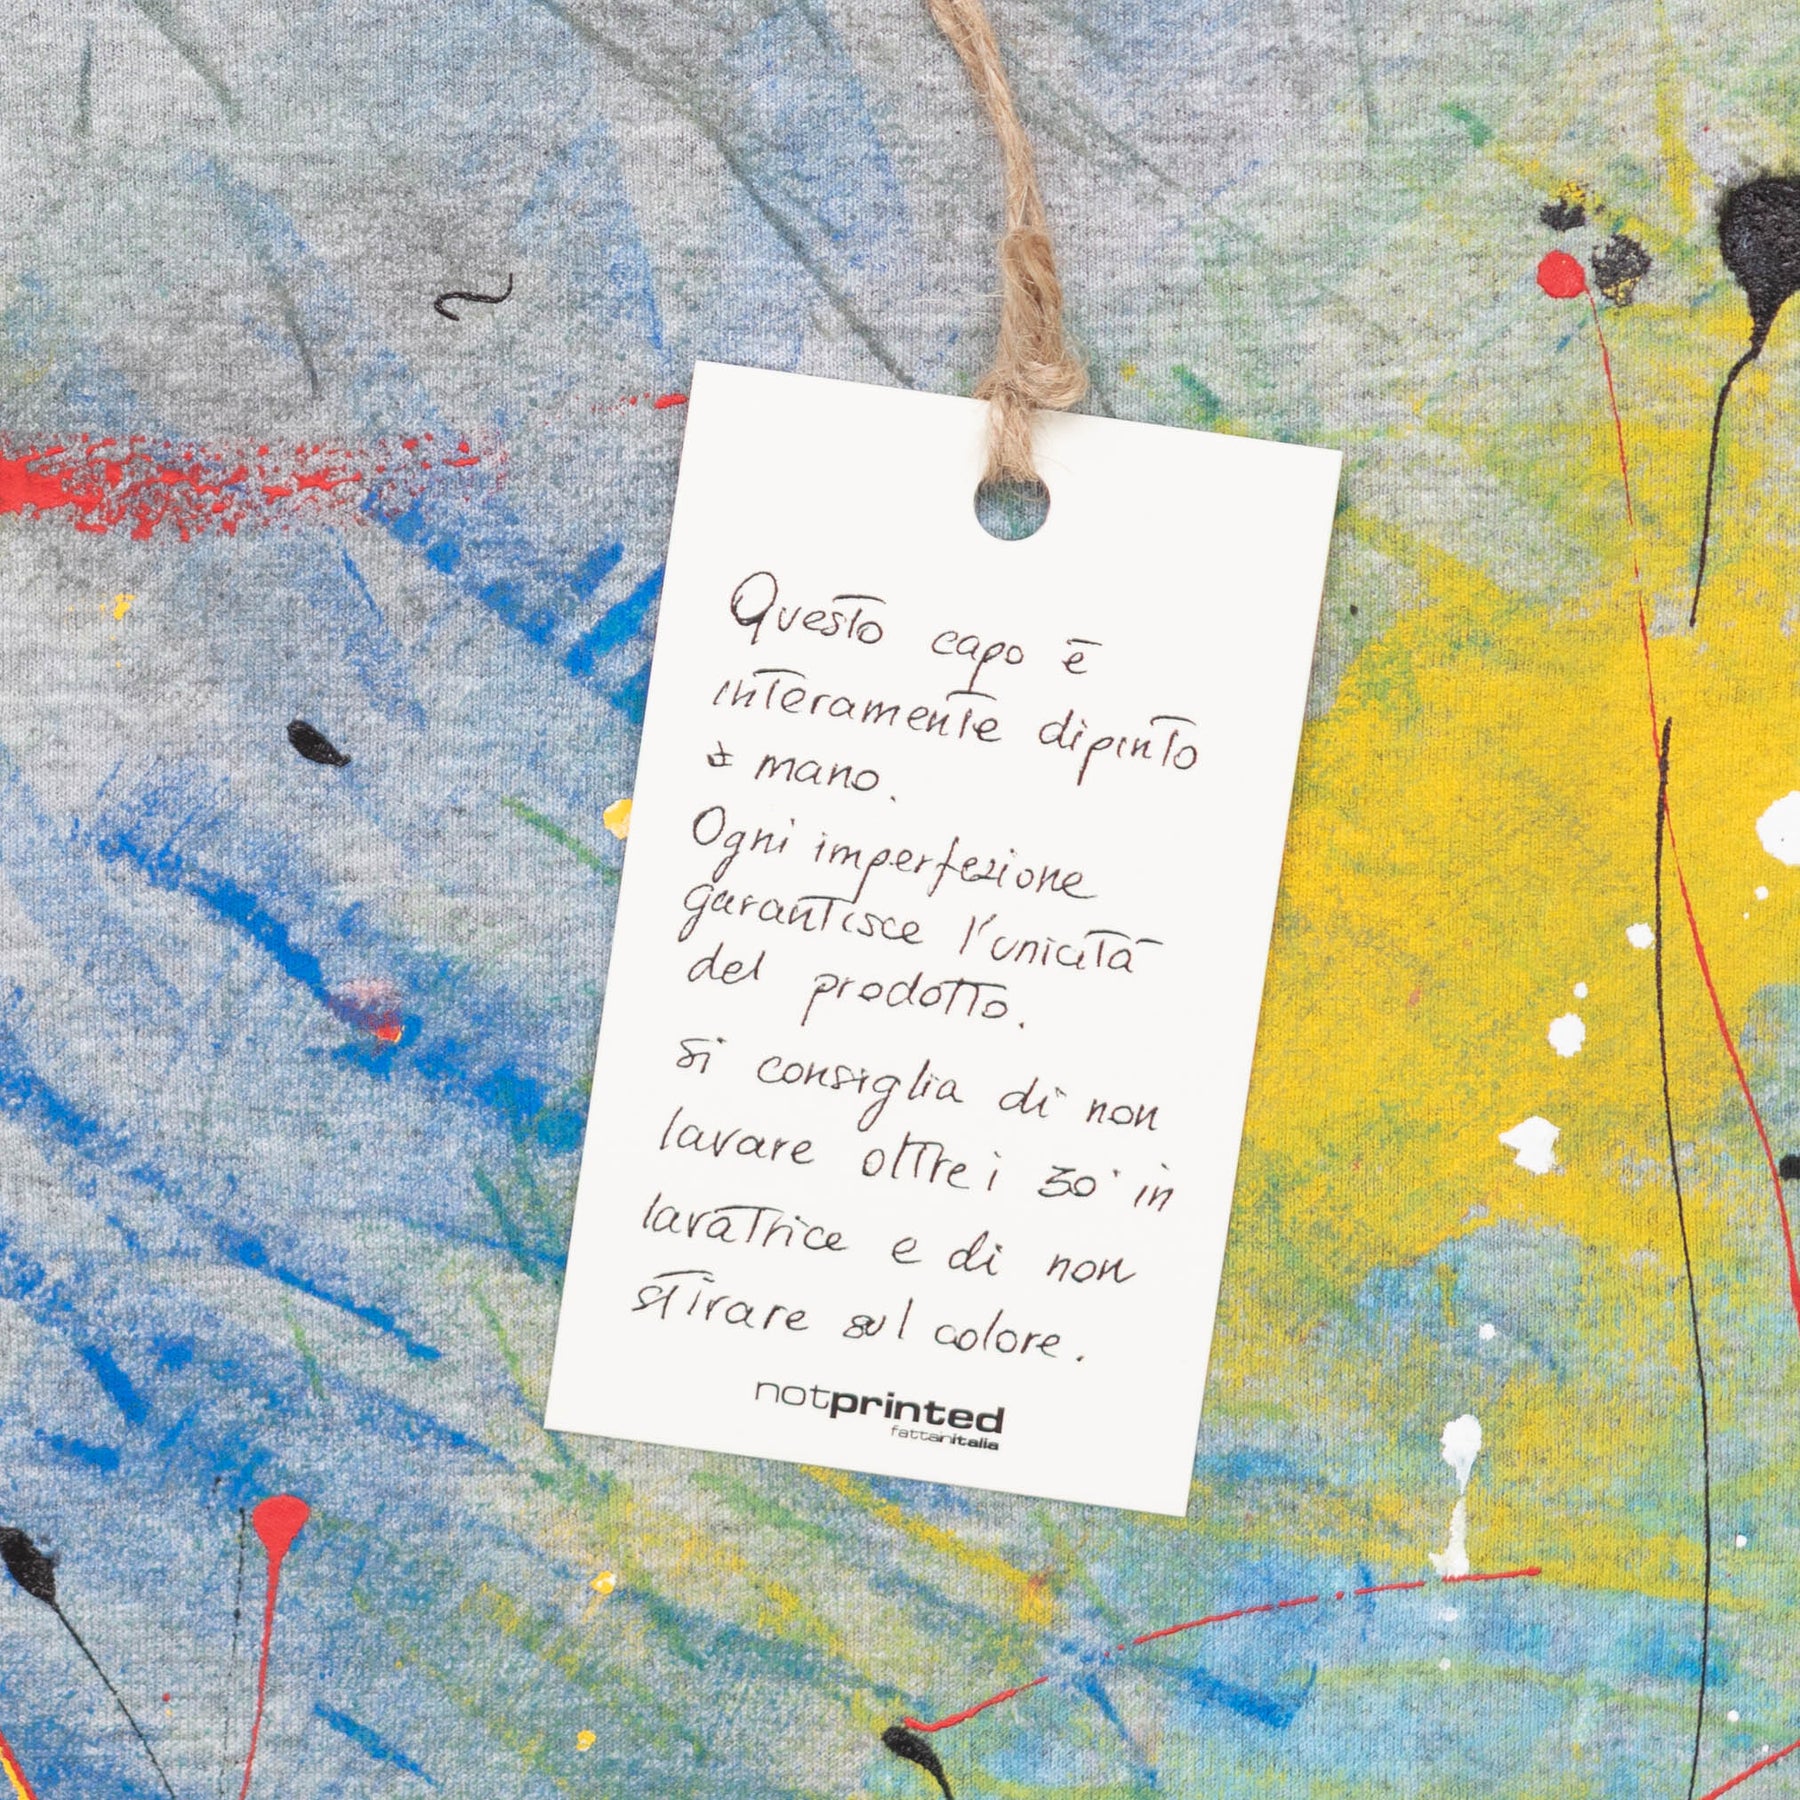 Questo capo è
interamente dipinto
a mano.
Ogni imperfezione
garantisce l'unicità
del prodotto.
Si consiglia di non
lavare oltre i 30° in
lavatrice e di non
stirare sul colore.
notprinted
fattainitalia